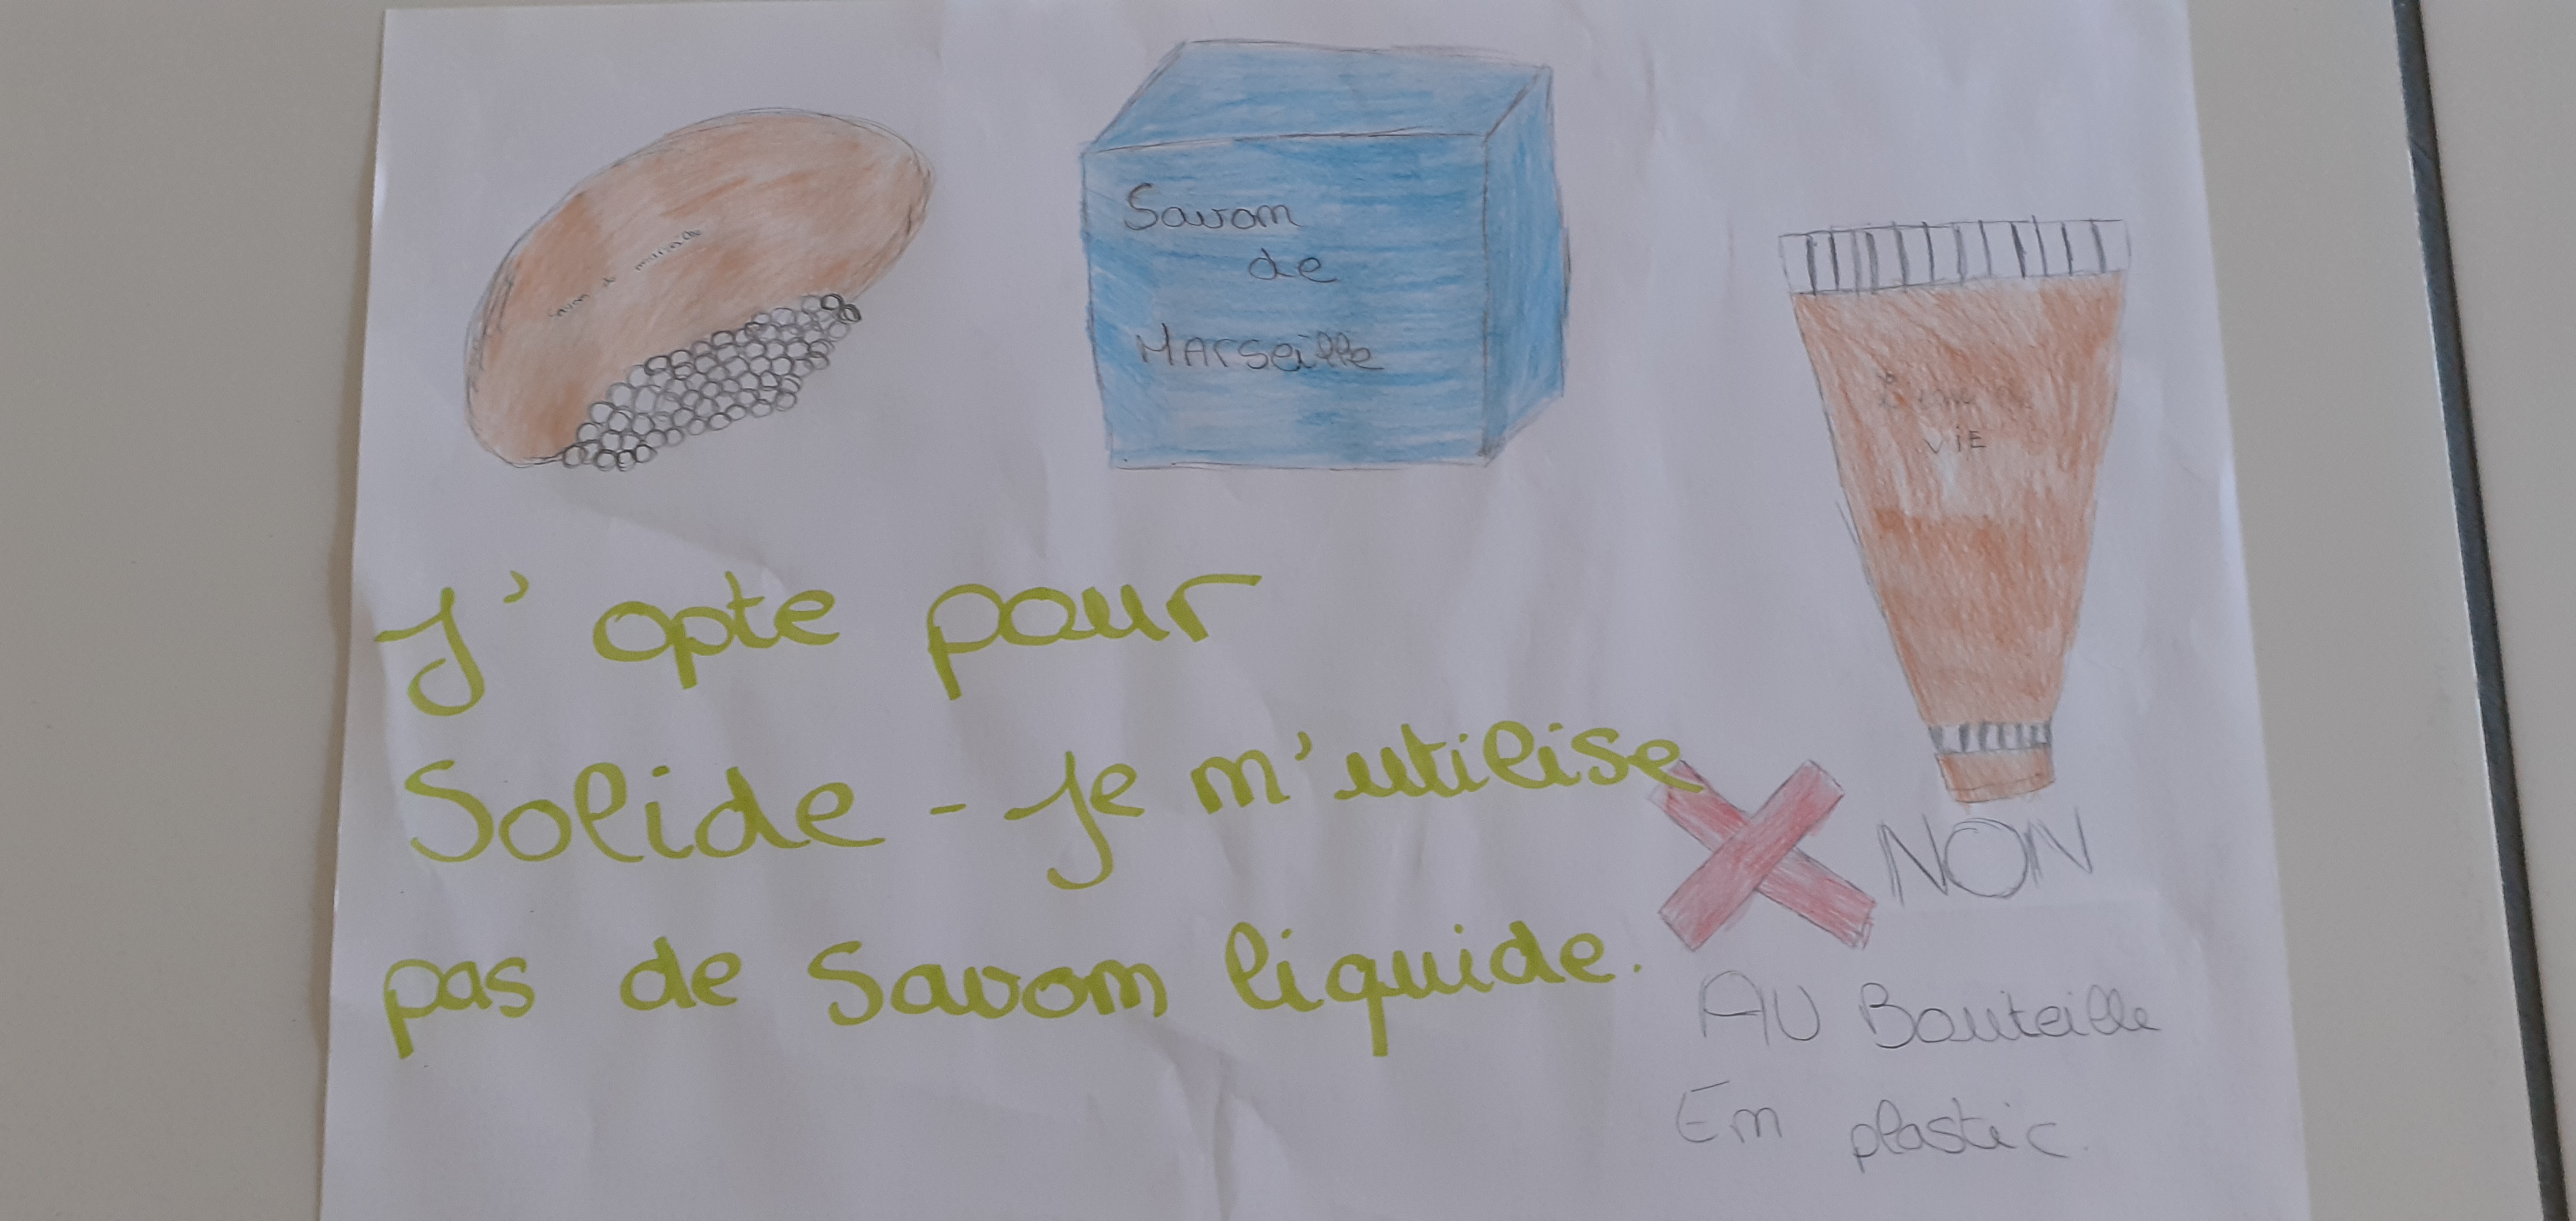 Savon de marseille
Savon
de
MArseille
VIE
J'opte pour
Solide - je n'utilise
pas de Savon liquide.
NON
AU Bouteille
En plastic.